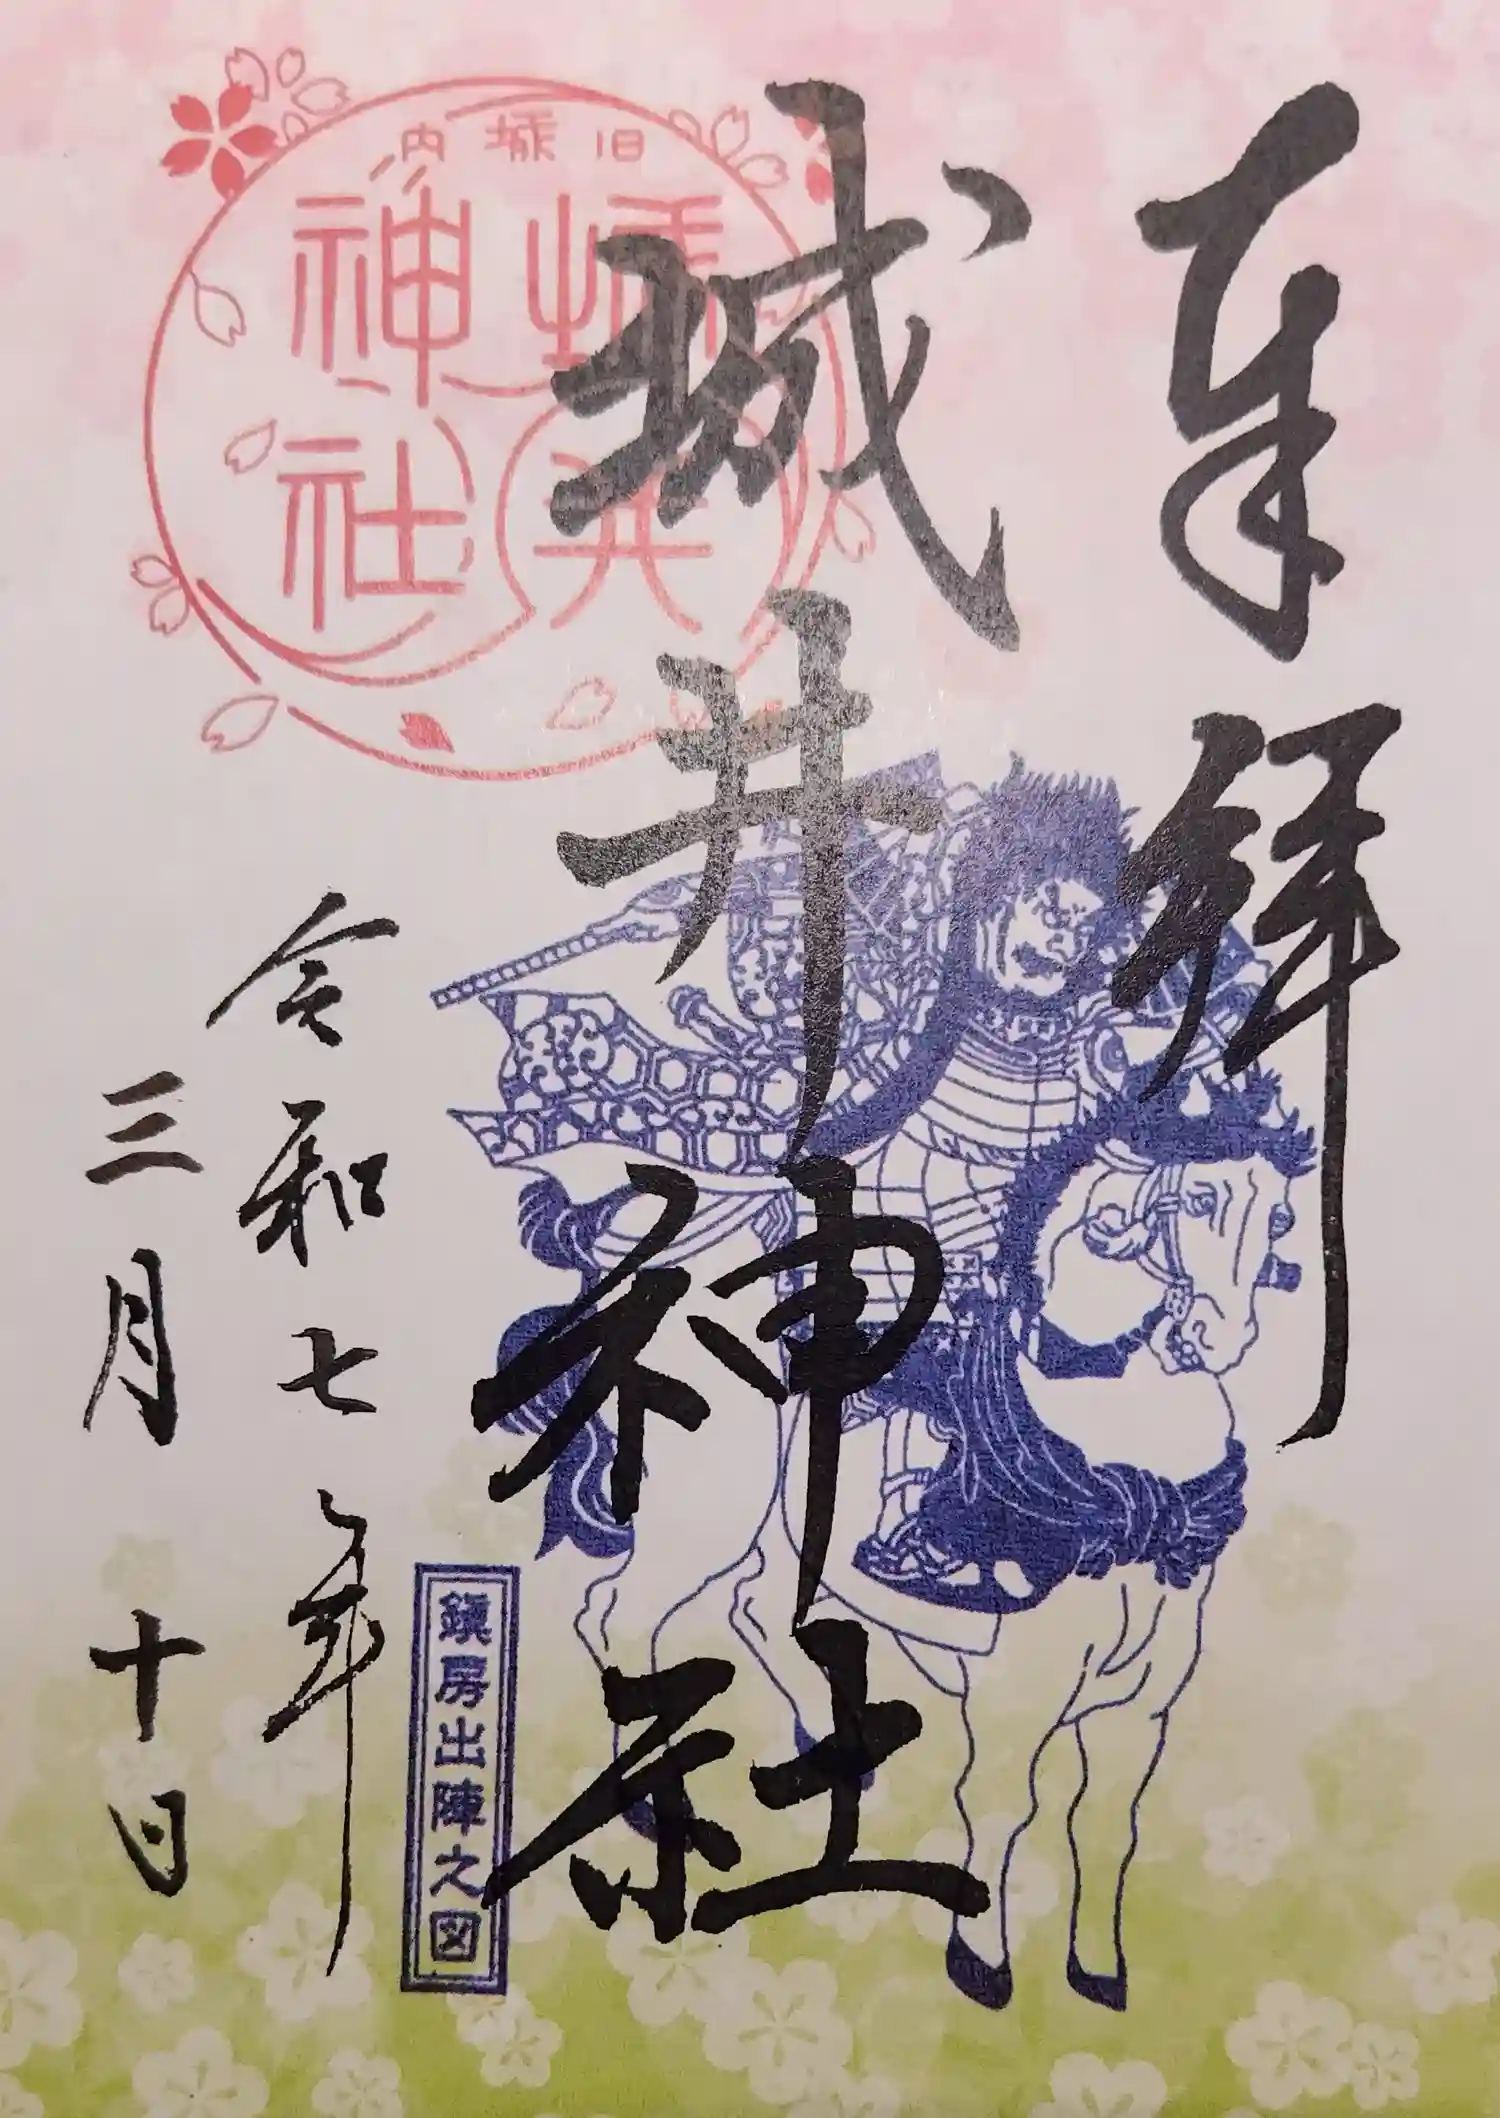 奉拝
城井神社
旧城内
城井
神社
令和七年
三月十日
鎮房出陣之図